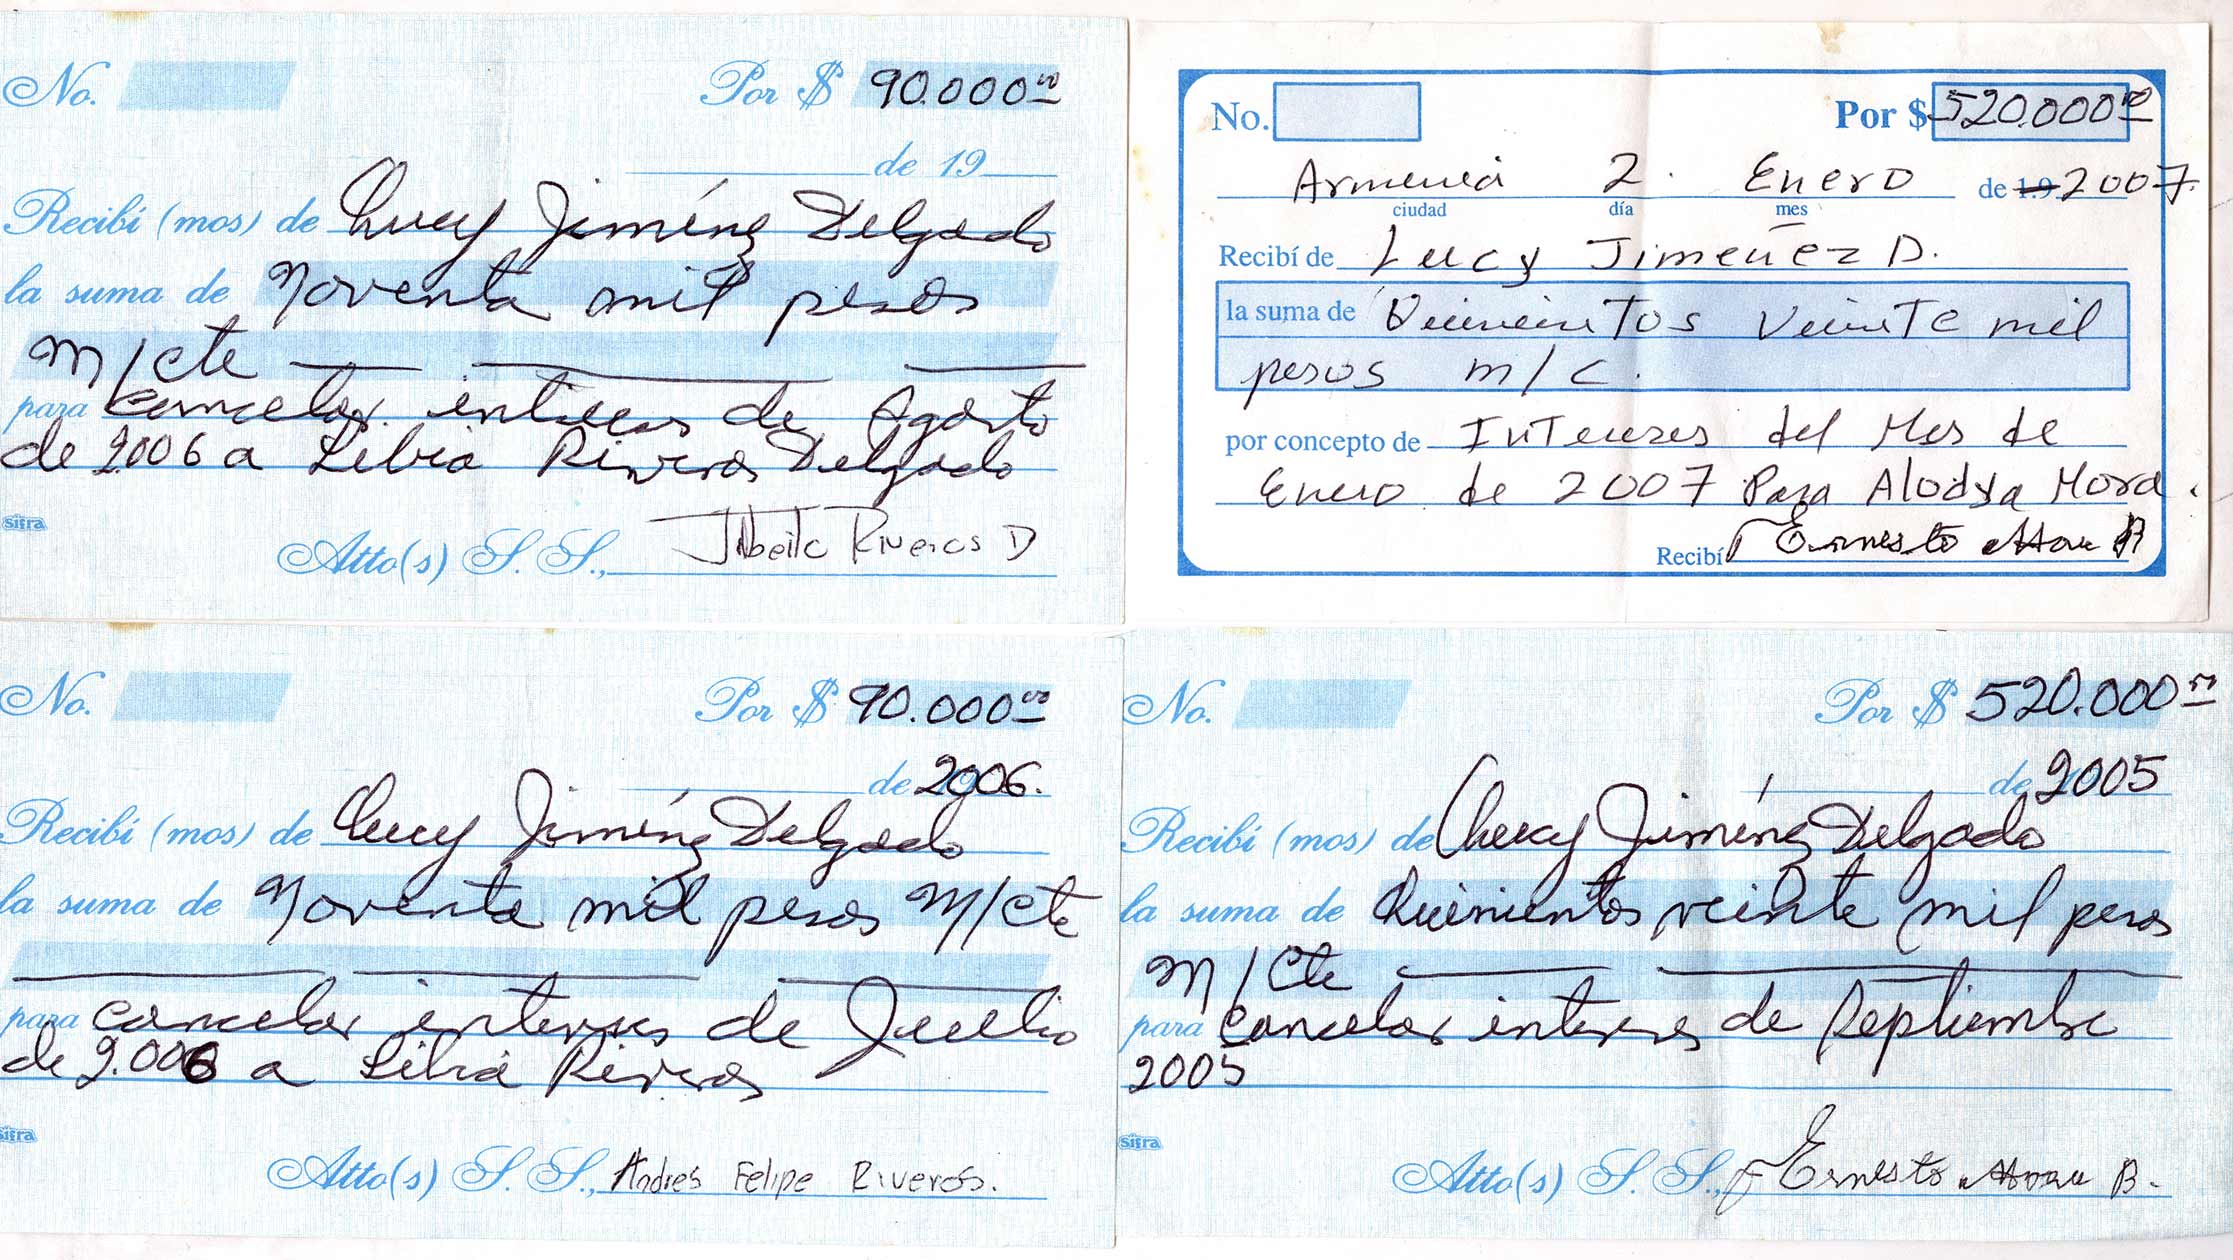 No.
Por $ 90.000 00
de 19
Recibí (mos) de Lucy Jiménez Delgado
la suma de Noventa mil pesos
M/cte
para cancelar intereses de Agosto
de 2.006 a Libia Riveros Delgado
sifra
Atto(s) S. S., Riveros D
No.
Por $ 520.000 00
Armenia 2. Enero de 1.9 2007.
ciudad día mes
Recibí de Lucy Jimenez D.
la suma de Quinientos Veinte mil
pesos m/c.
por concepto de Intereses del Mes de
Enero de 2007 Para Alodya Mora.
Recibí Ernesto B
No.
Por $ 90.000 00
de 2006.
Recibí (mos) de Lucy Jiménez Delgado
la suma de Noventa mil pesos M/cte
para cancelar intereses de Julio
de 2.006 a Libia Riveros
sifra
Atto(s) S. S., Andres Felipe Riveros.
No.
Por $ 520.000 00
de 2005
Recibí (mos) de Lucy Jiménez Delgado
la suma de Quinientos veinte mil pesos
M/Cte
para cancelar intereses de Septiembre
2005
sifra
Atto(s) S. S., Ernesto B.